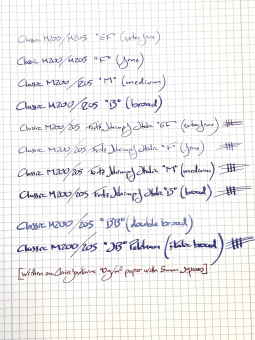 Classic M200/M205 "EF" (extra fine)
Classic M200/M205 "F" (fine)
Classic M200/205 "M" (medium)
Classic M200/205 "B" (broad)
Classic M200/205 Fritz Schimpf Italic "EF" (extra fine)
Classic M200/205 Fritz Schimpf Italic "F" (fine)
Classic M200/205 Fritz Schimpf Italic "M" (medium)
Classic M200/205 Fritz Schimpf Italic "B" (broad)
Classic M200/205 "BB" (double broad)
Classic M200/205 "IB" (italic broad)
[written on Clairefontaine 90g/m² paper with 5mm squares]